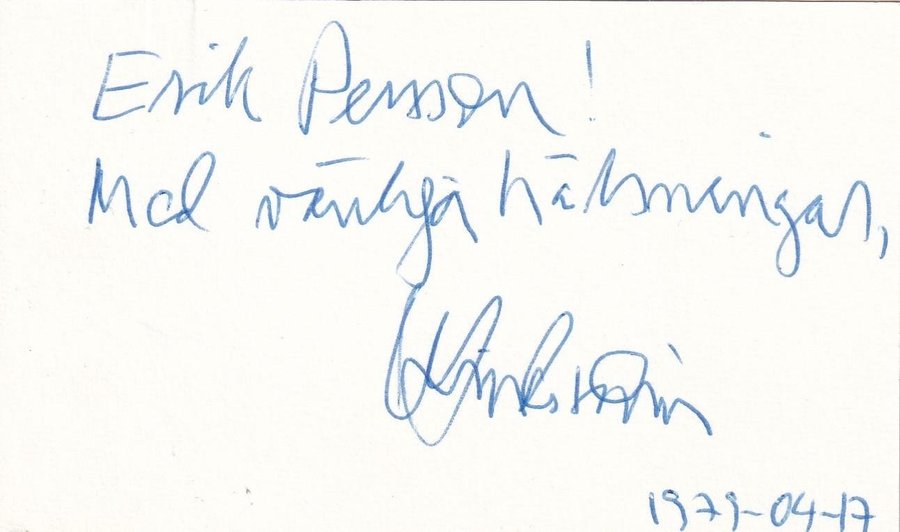 Erik Persson!
Med vänliga hälsningar,
1979-04-17